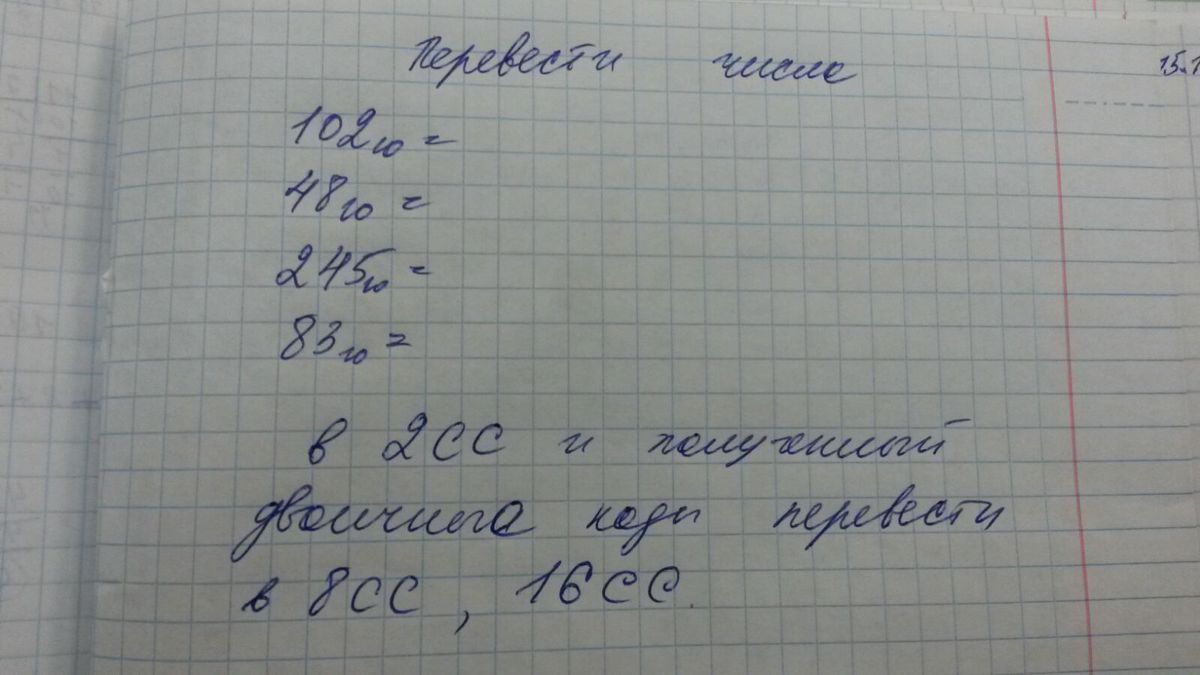 Перевести числа
15.1
102₁₀ =
48₁₀ =
245₁₀ =
83₁₀ =
в 2СС и полученный
двоичныа коды перевести
в 8СС, 16СС.